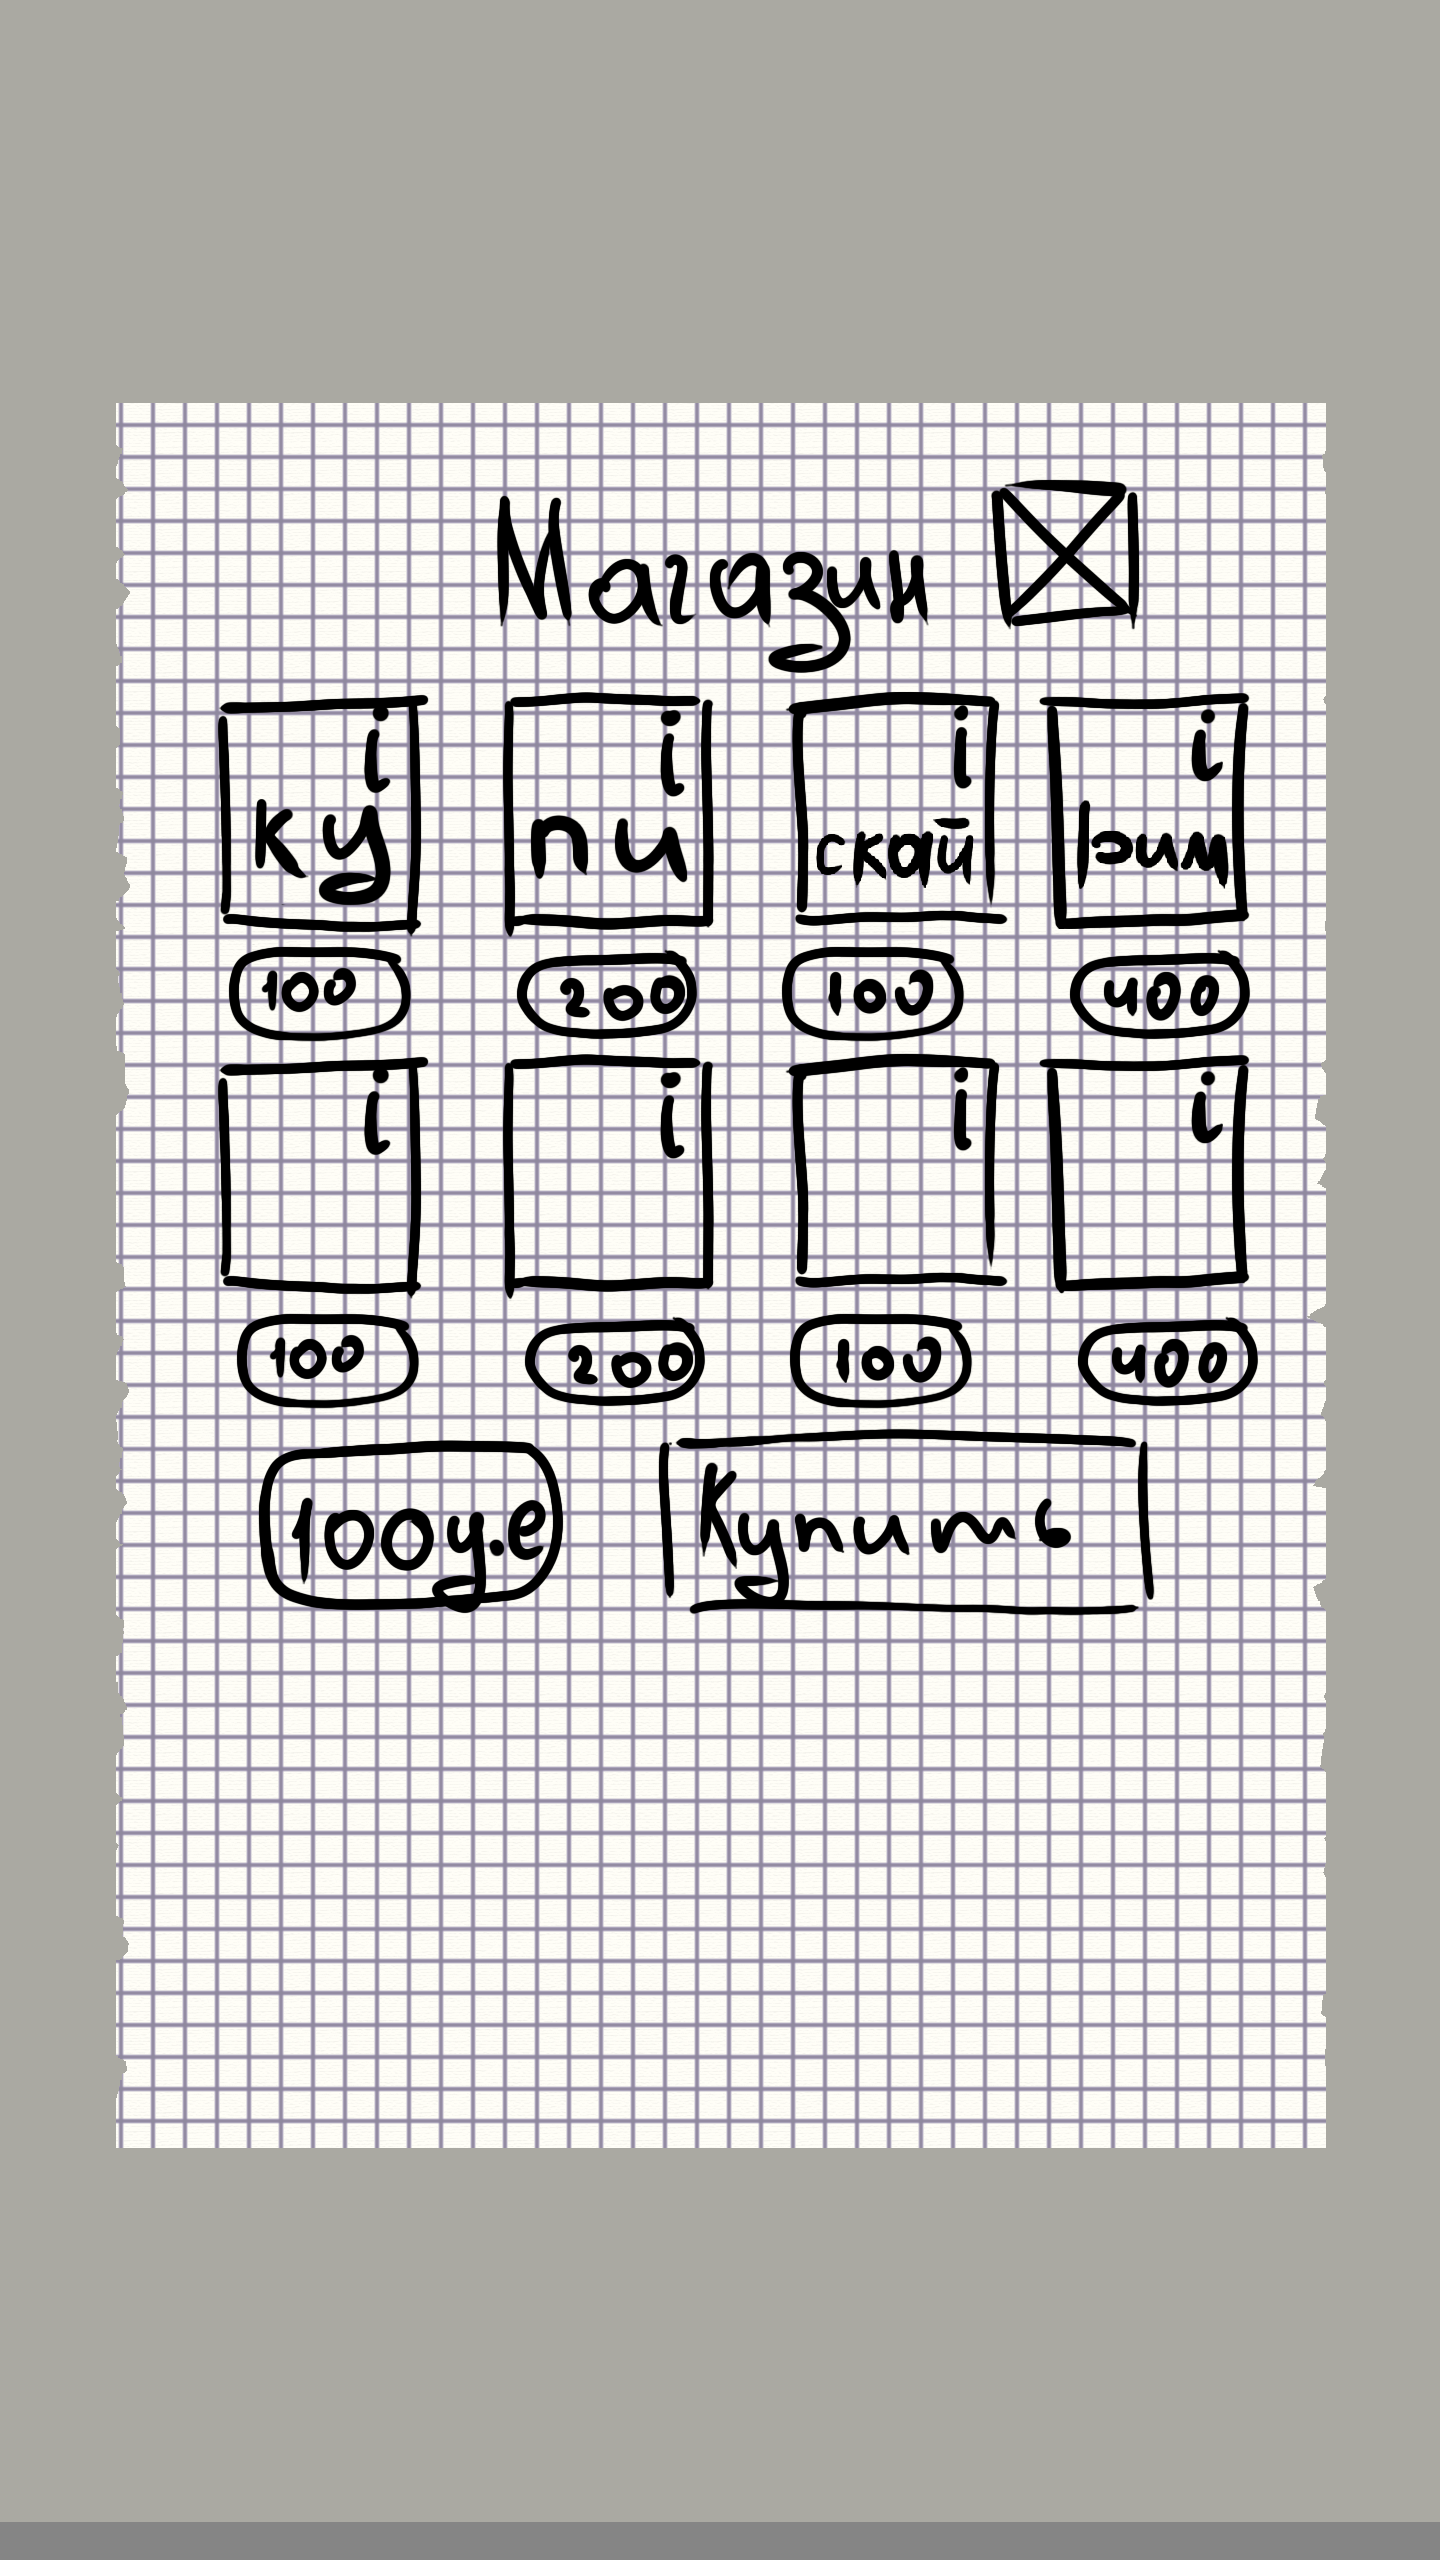 Магазин
i i i i
ку пи скай рим
100 200 100 400
i i i i
100 200 100 400
100 у.е Купить